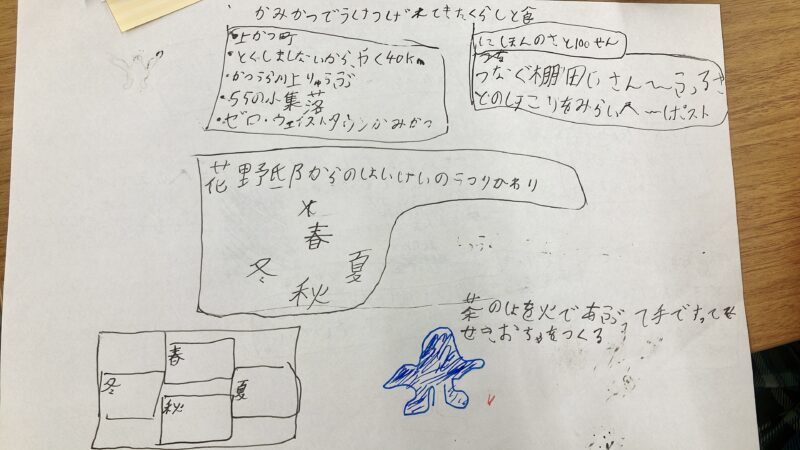 かみかつでうけつげ来てきたくらしと食
・上かつ町
・とくしましないから、やく40km
・かつうら川上りゅうぶ
・55の小集落
・ゼロ・ウェイストタウンかみかつ
にほんのさと100せん
つなぐ棚田いさん〜ふるさ
とのほこりをみらいへ〜ポスト
花野邸からのはいけいのうつりかわり
春
冬
夏
秋
茶のはを火であぶって手で
せきおちゃをつくる
春
冬
夏
秋